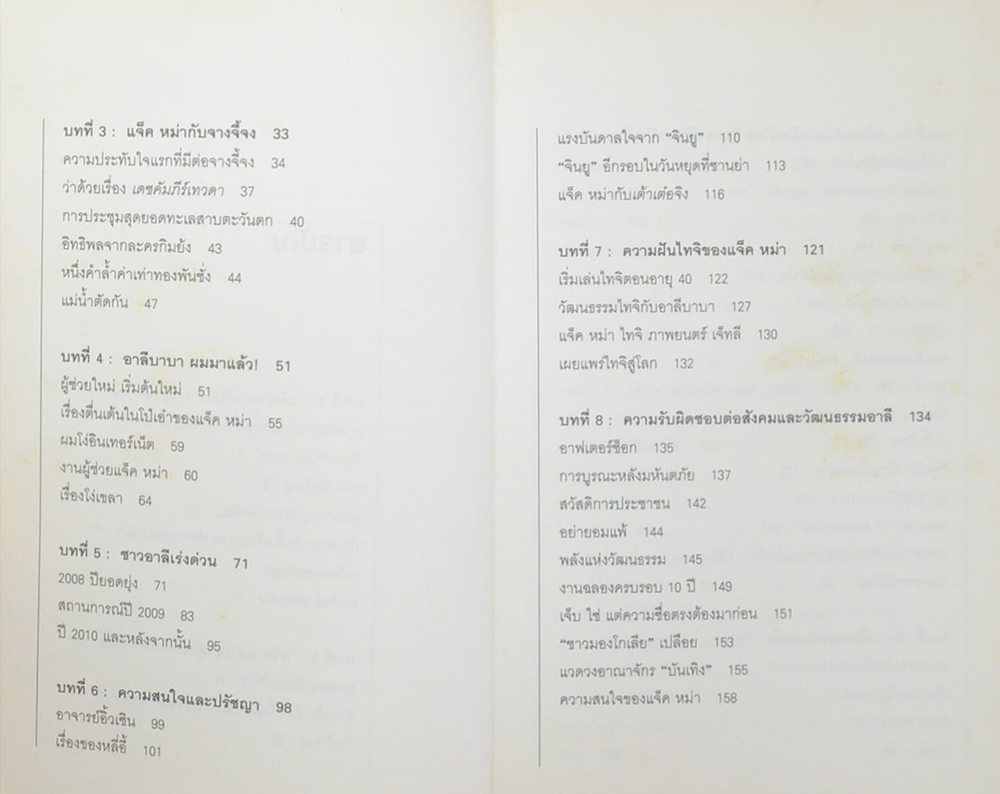 บทที่ 3 : แจ็ค หม่ากับจางจี้จง 33
ความประทับใจแรกที่มีต่อจางจี้จง 34
ว่าด้วยเรื่อง เดชคัมภีร์เทวดา 37
การประชุมสุดยอดทะเลสาบตะวันตก 40
อิทธิพลจากละครกิมย้ง 43
หนึ่งคำล้ำค่าเท่าทองพันชั่ง 44
แม่น้ำตัดกัน 47
บทที่ 4 : อาลีบาบา ผมมาแล้ว! 51
ผู้ช่วยใหม่ เริ่มต้นใหม่ 51
เรื่องตื่นเต้นในโป๋เอ๋าของแจ็ค หม่า 55
ผมโง่อินเทอร์เน็ต 59
งานผู้ช่วยแจ็ค หม่า 60
เรื่องโง่เขลา 64
บทที่ 5 : ชาวอาลีเร่งด่วน 71
2008 ปียอดยุ่ง 71
สถานการณ์ปี 2009 83
ปี 2010 และหลังจากนั้น 95
บทที่ 6 : ความสนใจและปรัชญา 98
อาจารย์อิ้วเซิน 99
เรื่องของหลี่อี้ 101
แรงบันดาลใจจาก “จินยู” 110
“จินยู” อีกรอบในวันหยุดที่ซานย่า 113
แจ็ค หม่ากับเต้าเต๋อจิง 116
บทที่ 7 : ความฝันไทจิของแจ็ค หม่า 121
เริ่มเล่นไทจิตอนอายุ 40 122
วัฒนธรรมไทจิกับอาลีบาบา 127
แจ็ค หม่า ไทจิ ภาพยนตร์ เจ็ทลี 130
เผยแพร่ไทจิสู่โลก 132
บทที่ 8 : ความรับผิดชอบต่อสังคมและวัฒนธรรมอาลี 134
อาฟเตอร์ช็อก 135
การบูรณะหลังมหันตภัย 137
สวัสดิการประชาชน 142
อย่ายอมแพ้ 144
พลังแห่งวัฒนธรรม 145
งานฉลองครบรอบ 10 ปี 149
เจ็บ ใช่ แต่ความซื่อตรงต้องมาก่อน 151
“ชาวมองโกเลีย” เปลือย 153
แวดวงอาณาจักร “บันเทิง” 155
ความสนใจของแจ็ค หม่า 158